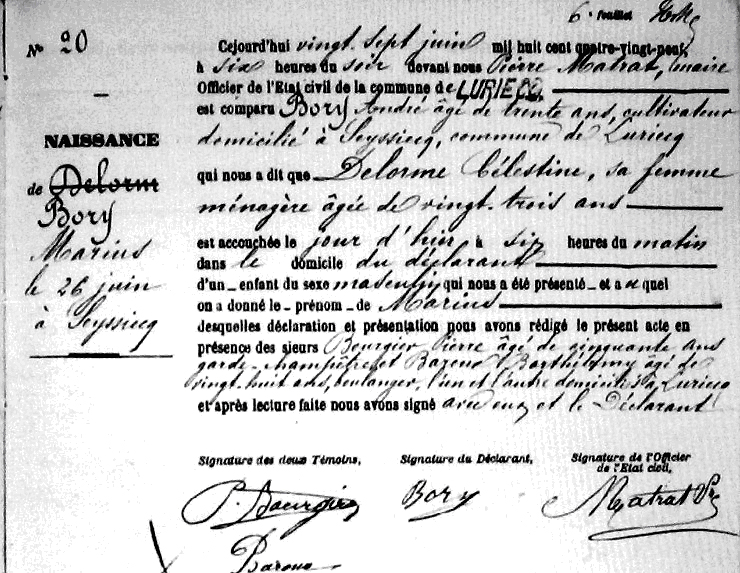 6e feuillet
No 20
NAISSANCE
de Delorm
Bory
Marius
le 26 juin
à Seyssiecq
Cejourd'hui vingt-sept juin mil huit cent quatre-vingt-neuf,
à six heures du soir devant nous Pierre Matrat, maire
Officier de l'Etat civil de la commune de LURIECQ,
est comparu Bory André âgé de trente ans, cultivateur
domicilié à Seyssiecq, commune de Luriecq
qui nous a dit que Delorme Célestine, sa femme
ménagère âgée de vingt-trois ans
est accouchée le jour d'hier à six heures du matin
dans le domicile du déclarant
d'un enfant du sexe masculin qui nous a été présenté et auquel
on a donné le prénom de Marius
desquelles déclaration et présentation nous avons rédigé le présent acte en
présence des sieurs Bourgier Pierre âgé de cinquante ans
garde-champêtre et Barou Barthélemy âgé de
vingt-huit ans, boulanger, l'un et l'autre domiciliés à Luriecq
et après lecture faite nous avons signé avec eux et le Déclarant
Signature des deux Témoins,
Signature du Déclarant,
Signature de l'Officier
de l'Etat civil,
P. Bourgier
Bory
Matrat
Barou